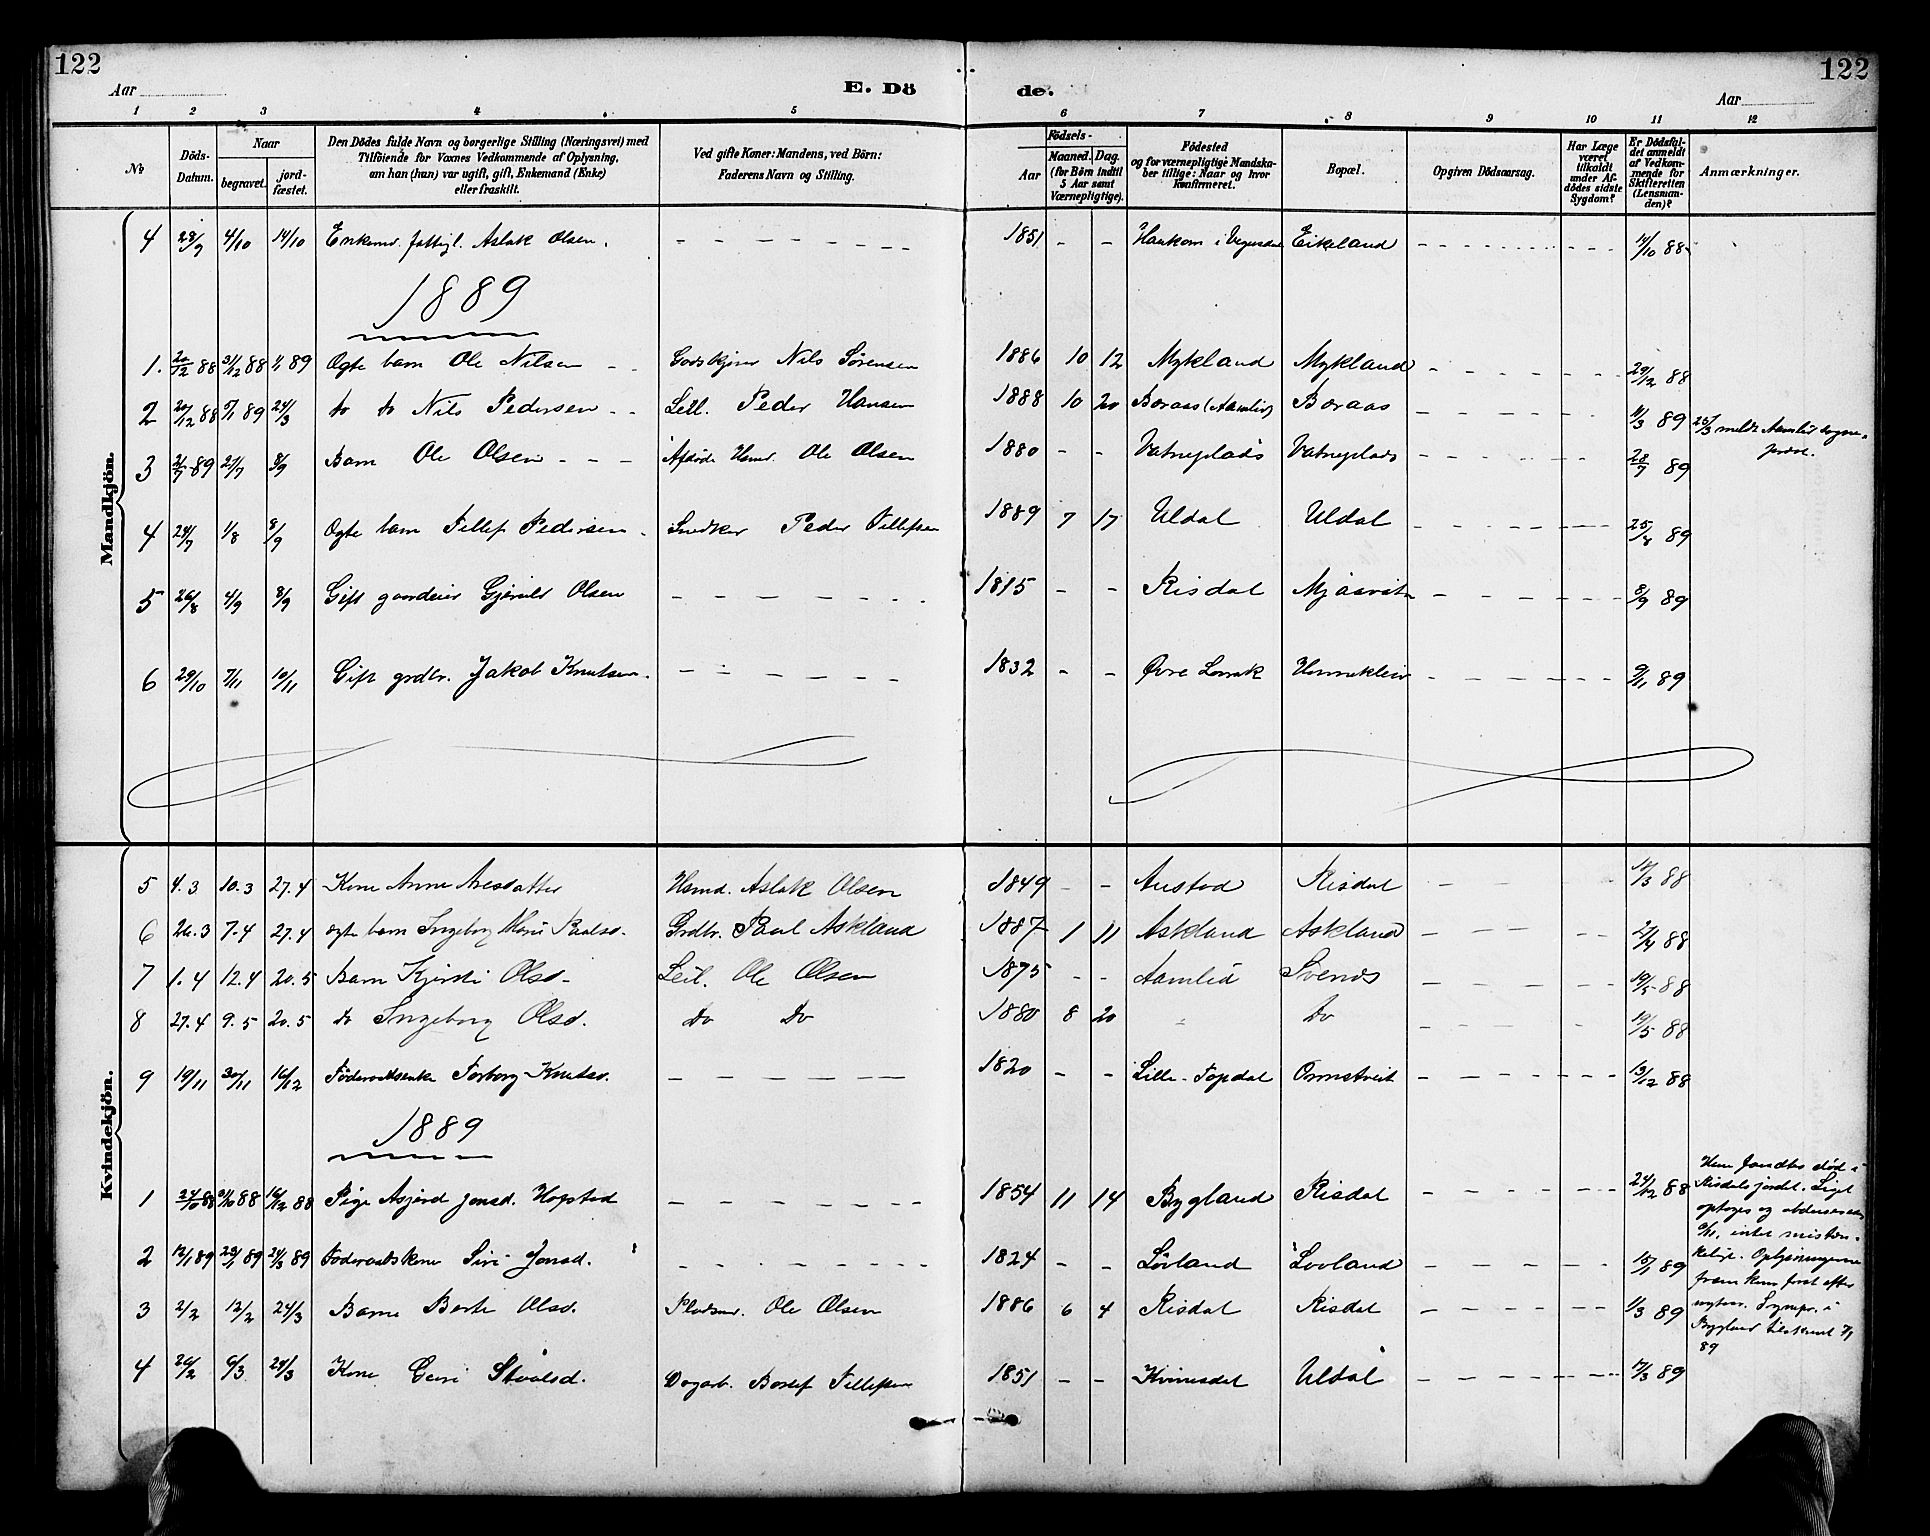 122
122
Aar
E. Dö
de.
Aar
1 2 3 4 5 6 7 8 9 10 11 12
№
Döds-Datum.
Naar
begravet.
jord-fæstet.
Den Dödes fulde Navn og borgerlige Stilling (Næringsvei) med
Tilföiende for Voxnes Vedkommende af Oplysning,
om han (hun) var ugift, gift, Enkemand (Enke)
eller fraskilt.
Ved gifte Koner: Mandens, ved Börn:
Faderens Navn og Stilling.
Födsels-
Aar
Maaned.
Dag.
(for Börn indtil
5 Aar samt
Værnepligtige).
Födested
og for værnepligtige Mandska-
ber tillige: Naar og hvor
konfirmeret.
Bopæl.
Opgiven Dödsaarsag.
Har Læge
været
tilkaldt
under Af-
dödes sidste
Sygdom?
Er Dödsfal-
det anmeldt
af Vedkom-
mende for
Skifteretten
(Lensman-
den)?
Anmærkninger.
Mandkjön.
4 28/9 4/10 14/10 Enkemd. fattigl. Aslak Olsen. 1851 - - Haukom i Vegusdal Eikeland 14/10 88
1889
1. 20/12 88 31/12 88 1/1 89 Ægte barn Ole Nilsen Nils Sørensen 1886 10 12 Mykland Mykland 29/12 88
2 20/12 88 5/1 89 24/3 do do Nils Pedersen Leil. Peder Hansen 1888 10 20 Boraas (Aamlid) Boraas 11/3 89 25/3 meldt Aamlid sogne-
præst.
3 21/7 89 27/7 8/9 Barn Ole Olsen Afdøde Hsmd. Ole Olsen 1880 - - Vatneplads Vatneplads 28/7 89
4 24/7 1/8 8/9 Ægte barn Tellef Pedersen Snedker Peder Tellefsen 1889 7 17 Uldal Uldal 25/8 89
5 26/8 4/9 8/9 Gift gaardeier Gjeruld Olsen 1815 - - Risdal Mjaavatn 8/9 89
6 29/10 7/11 10/11 Gift grdbr. Jakob Knutsen. 1832 - - Øvre Hunneklein 9/11 89
Kvindekjön.
5 4.3 10.3 27.4 Kone Anne Aresdatter Hsmd. Aslak Olsen 1849 - - Austad Risdal 14/3 88
6 26.3 7.4 27.4 ægte barn Ingeborg Marie Paalsd. Grdbr. Paul Askland 1887 1 11 Askland Askland 27/4 88
7 1.4 12.4 20.5 Barn Kjersti Olsd. Leil. Ole Olsen 1875 - - Aamlid Svenes 19/5 88
8 27.4 9.5 20.5 do Ingeborg Olsd. do do 1880 8 20 " do 19/5 88
9 19/11 30/11 16/12 Föderaadsenke Torborg Knutsd. 1820 - - Lille-Topdal Ormstveit 13/12 88
1889
1 24/10 88 31/10 88 16/12 88 Pige Asgjerd Jonsd. Hofstad 1854 11 14 Bygland Risdal 24/12 88 Hun fandtes død i
Risdalsjordet. Liget
optoges og obduseredes
intet misten-
keligt. Oplysningerne
fremkom først efter
nytaar. i
Bygland tilskrevet 7/1
89
2 12/1 89 29/1 89 24/3 89 Föderaadskone Siri Jonsd. 1824 - - Løvland Lovland 15/1 89
3 2/2 12/2 24/3 Barne Berte Olsd. Pladsmd. Ole Olsen 1886 6 4 Risdal Risdal 1/3 89
4 26/2 6/3 24/3 Kone Guri Staalsd. Dagarb. Tellefsen 1851 - - Kvinesdal Uldal 17/3 89